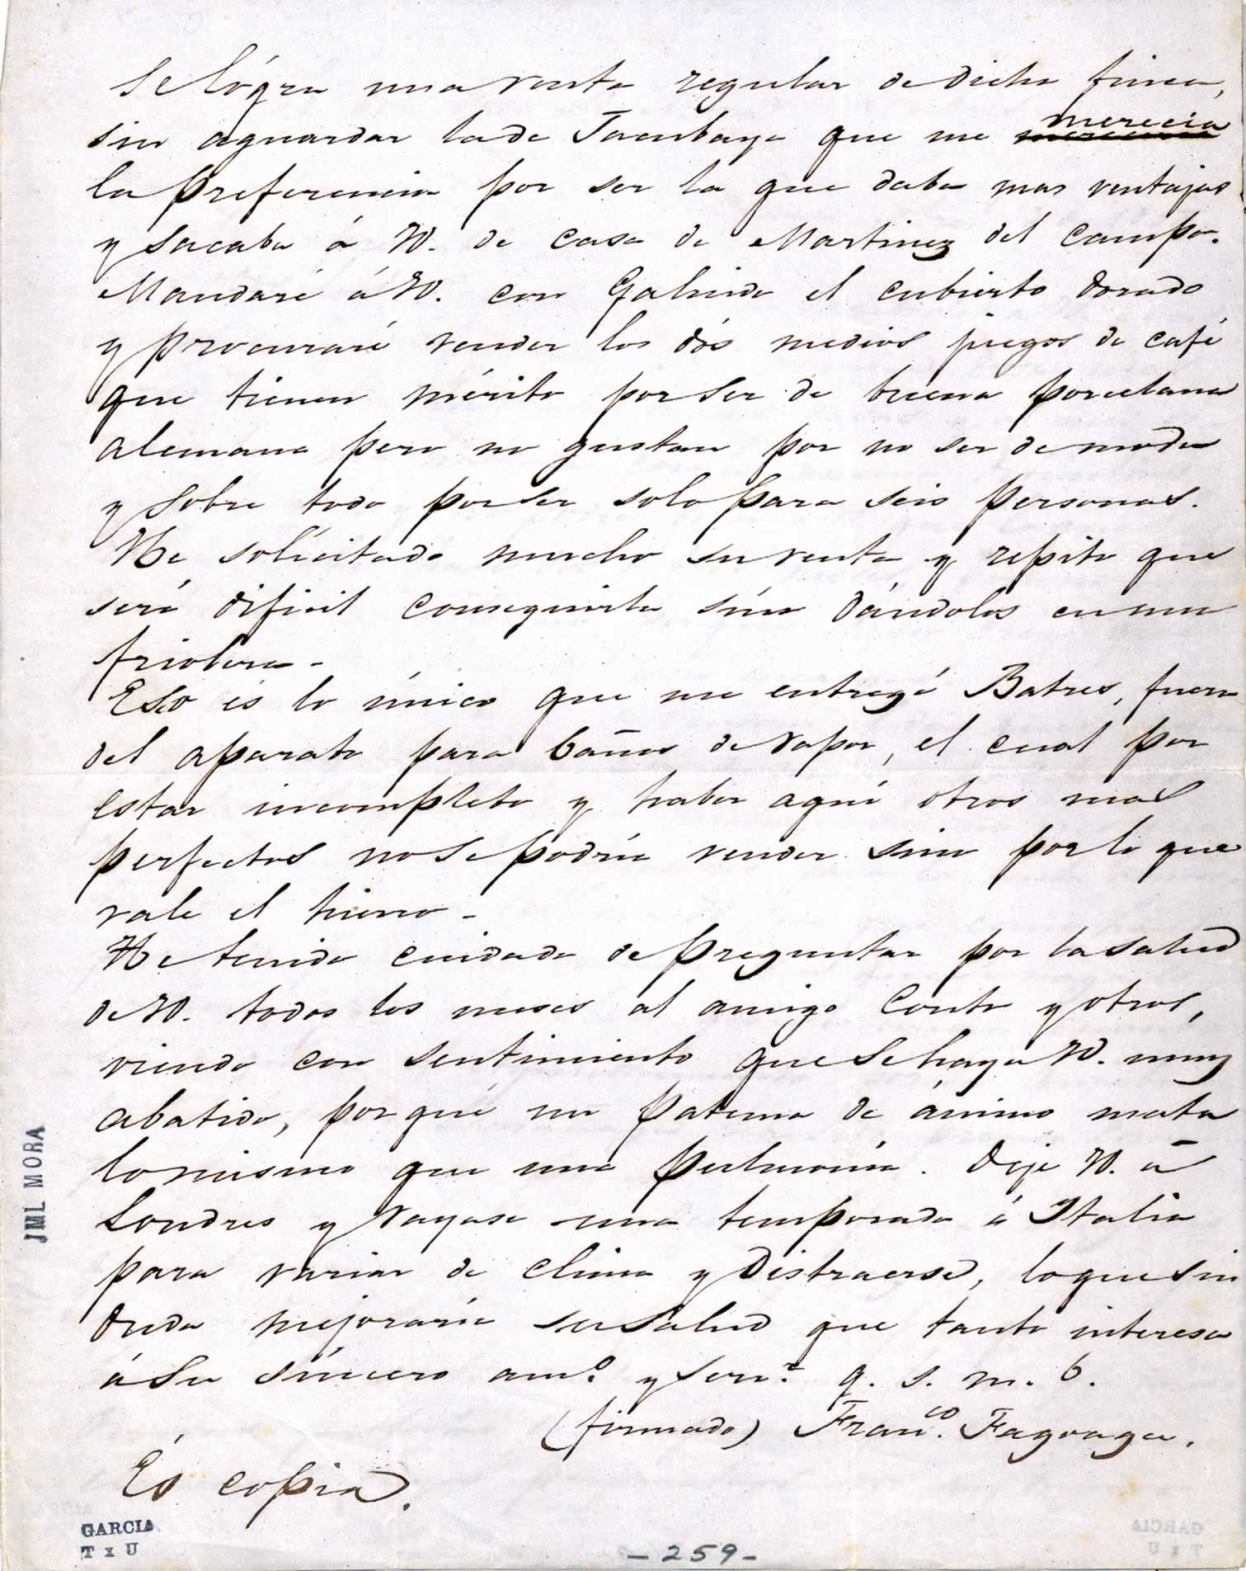 se lógra una venta regular de dicha finca,
sin aguardar la de Tacubaya que me merecia
la preferencia por ser la que daba mas ventajas
y sacaba á V. de casa de Martinez del campo.
Mandaré á V. con Galindo el cubierto dorado
y procuraré vender los dós medios juegos de café
que tienen mérito por ser de buena porcelana
alemana pero no gustan por no ser de moda
y sobre todo por ser solo para seis personas.
He solicitado mucho su venta y repito que
será dificil conseguirla sino dándolos en una
friolera -
Eso es lo único que me entregó Batres, fuera
del aparato para baños de vapor, el cual por
estar incompleto y haber aqui otros mas
perfectos no se podria vender sino por lo que
vale el hierro -
He tenido cuidado de preguntar por la salud
de V. todos los meses al amigo Conto y otros,
viendo con sentimiento que se haya V. muy
abatido, por qué un pátema de ánimo mata
lo mismo que una pulmonia. Deje V. á
Londres y vayase una temporada á Italia
para variar de clima y distraerse, lo que sin
duda mejoraria su salud que tanto interesa
á su sincero amo. y serv.r q. s. m. b.
(firmado) Franco. Fagoaga.
Es copia.
JML MORA
GARCIA
T x U
- 259 -